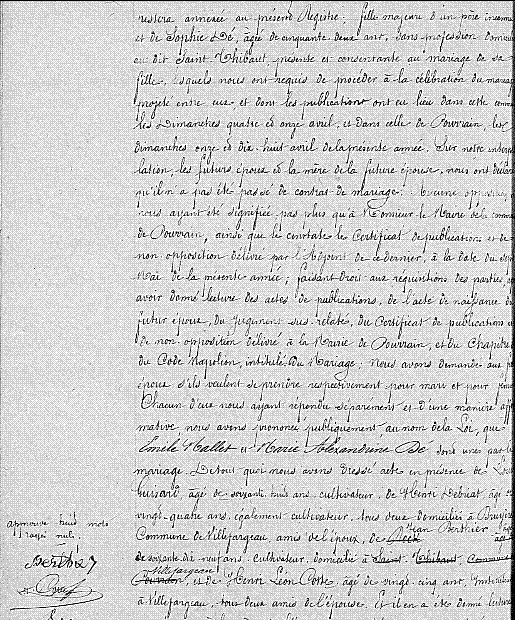 restera annexée au présent Registre; fille majeure d'un père inconnu
et de Sophie Dé, âgé de cinquante deux ans, sans profession, domici
au dit Saint Thibaut, présente et consentante au mariage de sa
fille, Lesquels nous ont requis de procéder à la célébration du mariage
projeté entre eux, et dont les publications ont eu lieu dans cette comm
les Dimanches quatre et onze avril, et dans celle de Pourrain, les
dimanches onze et dix huit avril de la présente année. Sur notre interpel
lation, les futurs époux et la mère de la future épouse, nous ont déclaré
qu'il n'a pas été passé de contrat de mariage. Aucune opposition
nous ayant été signifiée, pas plus qu'à Monsieur le Maire de la commune
de Pourrain, ainsi que le constate le Certificat de publication et de
non opposition délivré par l'Adjoint de ce dernier, à la date du
Mai de la présente année; faisant droit aux réquisitions des parties, a
avoir donné lecture des actes de publications, de l'acte de naissance du
futur époux, du Jugement sus-relatés, du Certificat de publications et
de non opposition délivré à la Mairie de Pourrain, et du Chapitre
du Code Napoléon, intitulé, Du Mariage; Nous avons demandé aux
époux s'ils veulent se prendre respectivement pour mari et pour femme
Chacun d'eux nous ayant répondu séparément et d'une manière affir
mative nous avons prononcé publiquement au nom de la Loi, que
Emile Mallet et Marie Alexandrine Dé sont unis par le
mariage. De tout quoi nous avons dressé acte en présence de Louis
Guisard, âgé de soixante huit ans, cultivateur, de Henri Debriat, âgé de
vingt-quatre ans, également cultivateur, tous deux domiciliés à Bruyères
Commune de Villefargeau, amis de l'époux, de Jean Berthier, âgé
de soixante dix neuf ans, cultivateur, domicilié à Saint Thibaut, Commune
Villefargeau
Pourrain, et de Henri Léon Porte, âgé de vingt-cinq ans, Instituteur
à Villefargeau, tous deux amis de l'épouse. Et il en a été donné lecture
approuvé huit mots
rayés nuls.